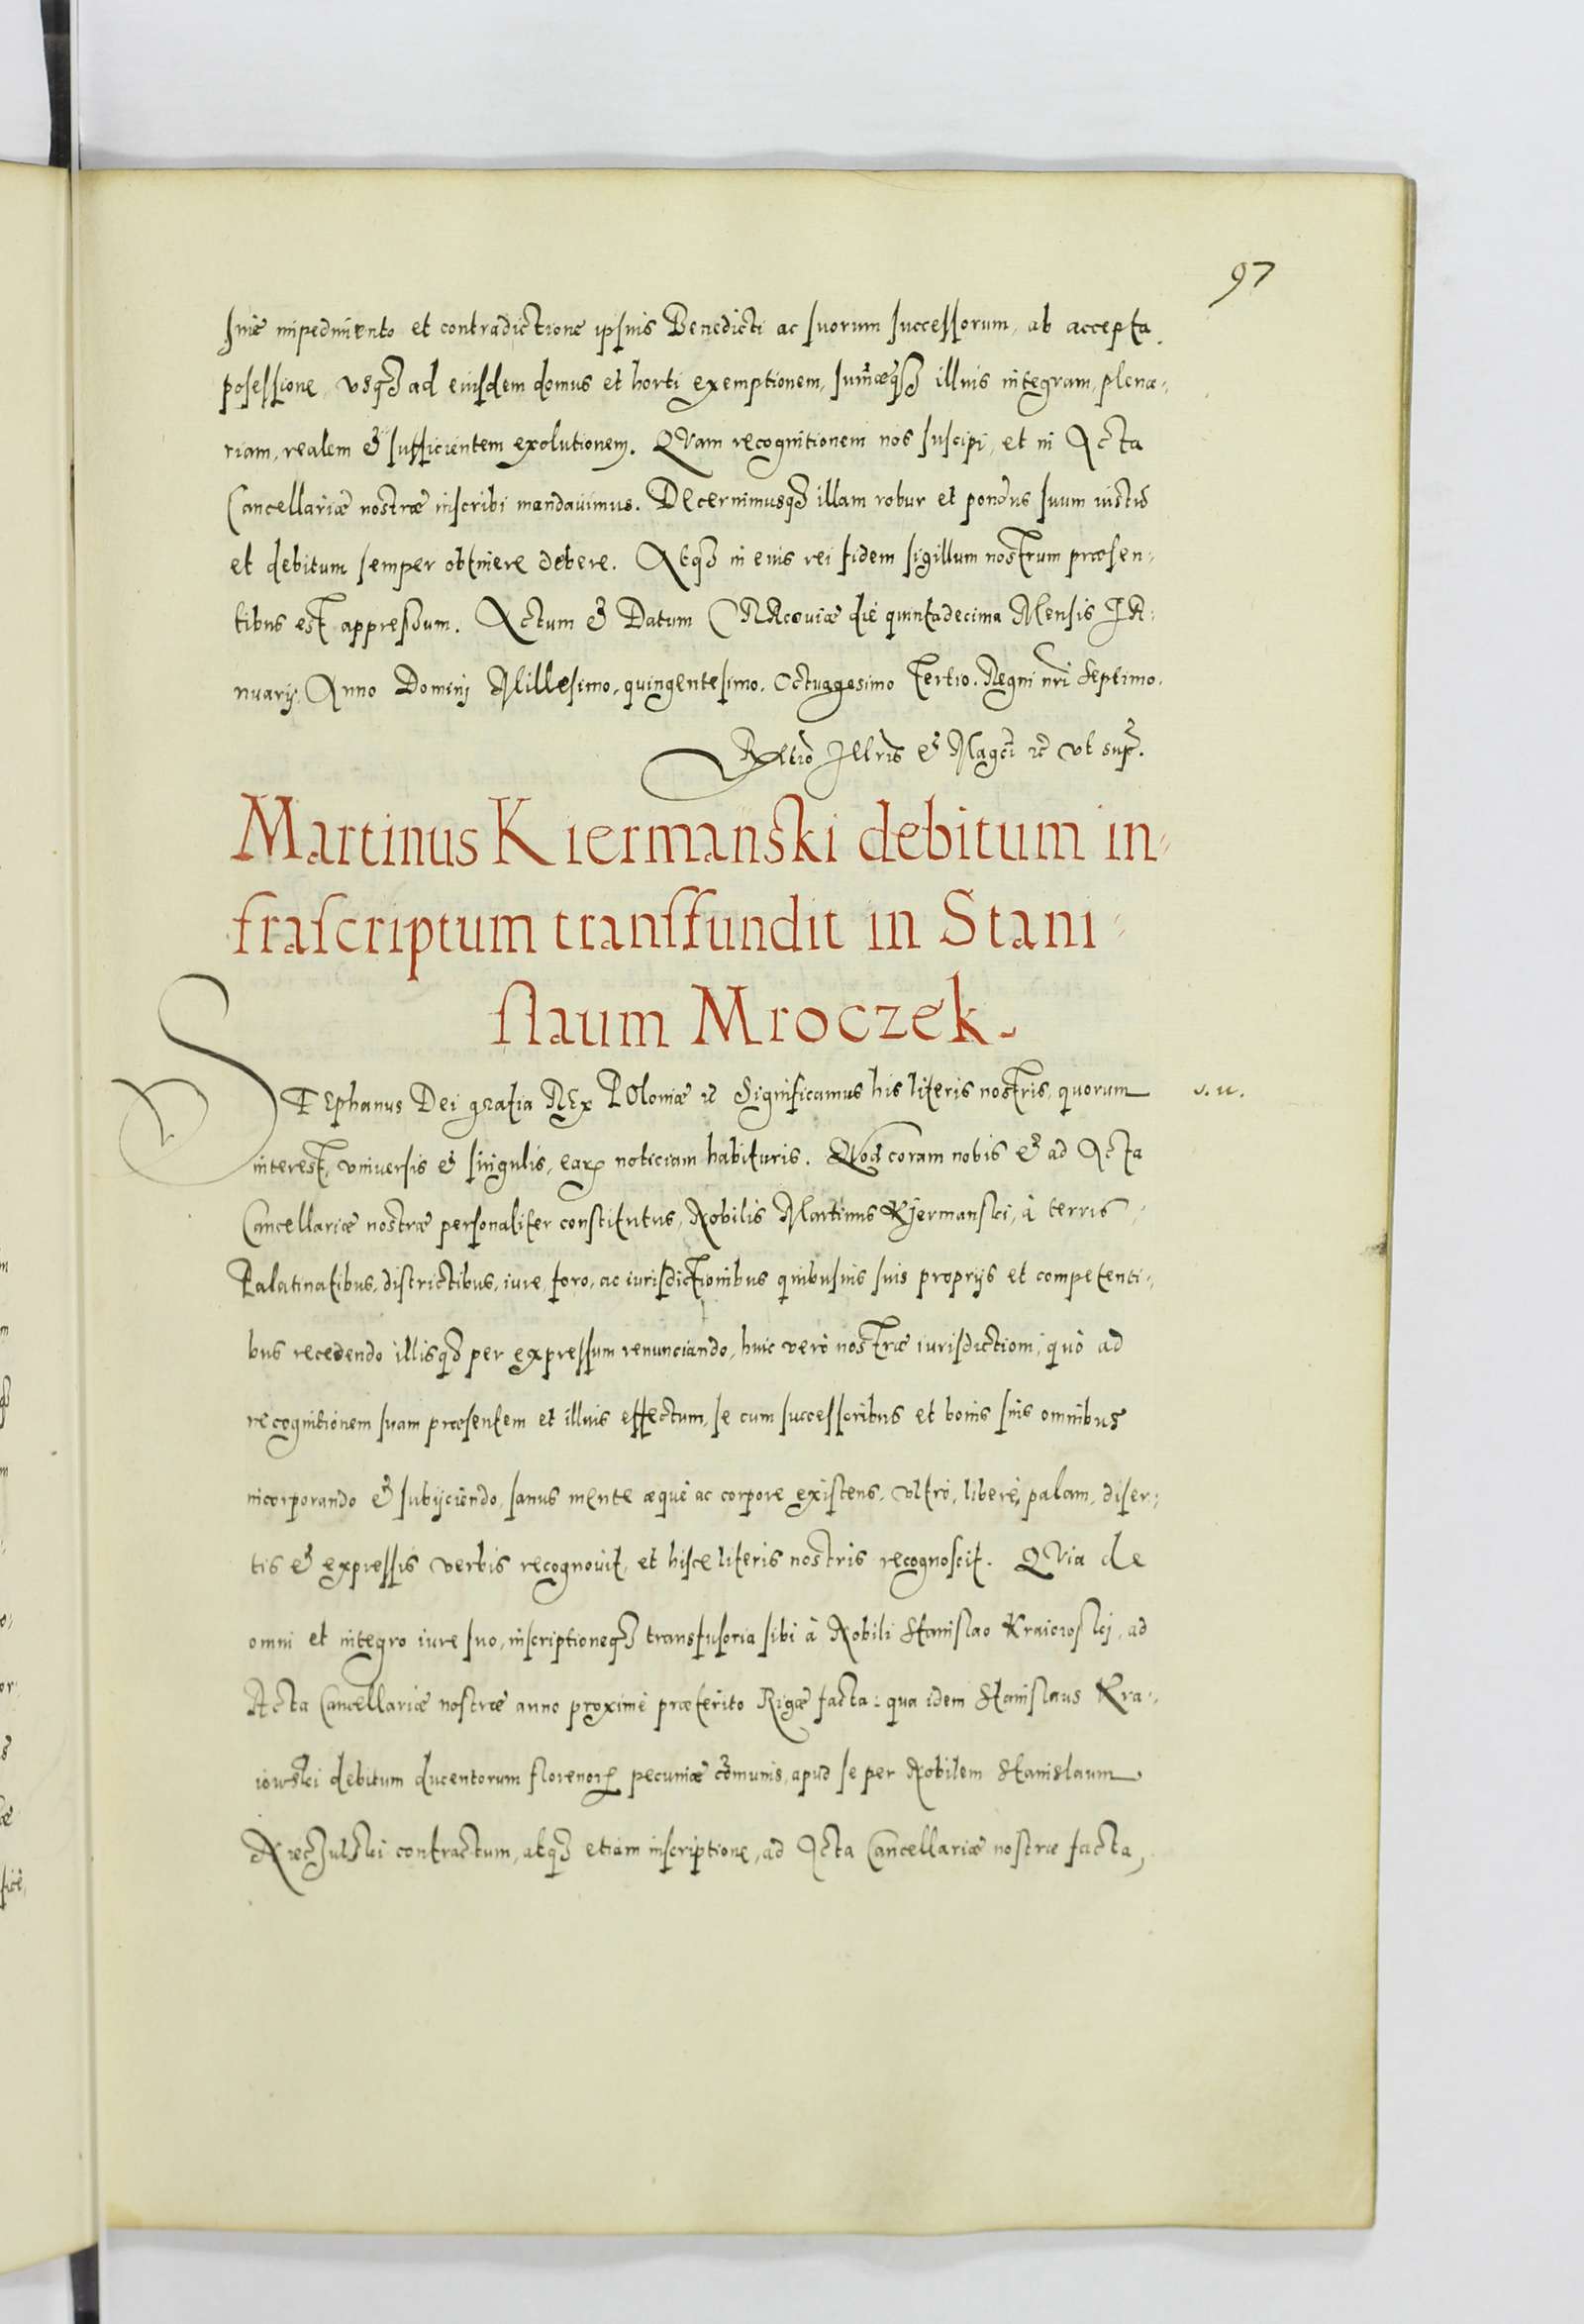 97
sine impedimento et contradictione ipsius Benedicti ac suorum successorum, ab accepta
posessione, vsq3 ad eiusdem domus et horti exemptionem, sum̄æq3 illius integram, plena-
riam, realem & sufficientem exolutionem. QVam recognitionem nos suscipi, et in Acta
Cancellariæ nostræ inscribi mandauimus. DEcernimusq3 illam robur et pondus suum iustū
et debitum semper obtinere debere. Atq3 in eius rei fidem sigillum nostrum præsen-
tibus est appressum. Actum & Datum CRAcouiæ die quintadecima Mensis IA-
nuarij, Anno Domini Millesimo, quingentesimo, Octuagesimo Tertio. Regni nr̄i Septimo.
Rltio Jllris & Magci ꝛc vt sup.
Martinus Kiermanski debitum in-
frascriptum transfundit in Stani-
slaum Mroczek.
STEphanus Dei gratia REx POloniæ ꝛc Significamus his literis nostris, quorum
interest, vniuersis & singulis, earꝝ noticiam habituris. QVod coram nobis & ad Acta
Cancellariæ nostræ personaliter constitutus, Nobilis Martinus Kjermanski, à terris,
Palatinatibus, districtibus, iure, foro, ac iurisdictionibus quibusuis suis proprijs et competenti-
bus recedendo illisq3 per expressum renunciando, huic verò nostræ iurisdictioni, quò ad
recognitionem suam præsentem et illius effectum, se cum successoribus et bonis suis omnibus
incorporando & subijciendo, sanus mente æquè ac corpore existens, vltrò, liberè, palam, diser-
tis & expressis verbis recognouit, et hisce literis nostris recognoscit. QVia de
omni et integro iure suo, inscriptioneq3 transfusoria sibi à Nobili Stanislao Kraiowski, ad
Acta Cancellariæ nostræ anno proximè præterito Rigæ facta: qua idem Stanislaus Kra-
iowski debitum ducentorum florenorꝝ pecuniæ cōmunis, apud se per Nobilem Stanislaum
contractum, atq3 etiam inscriptione, ad Acta Cancellariæ nostræ facta,